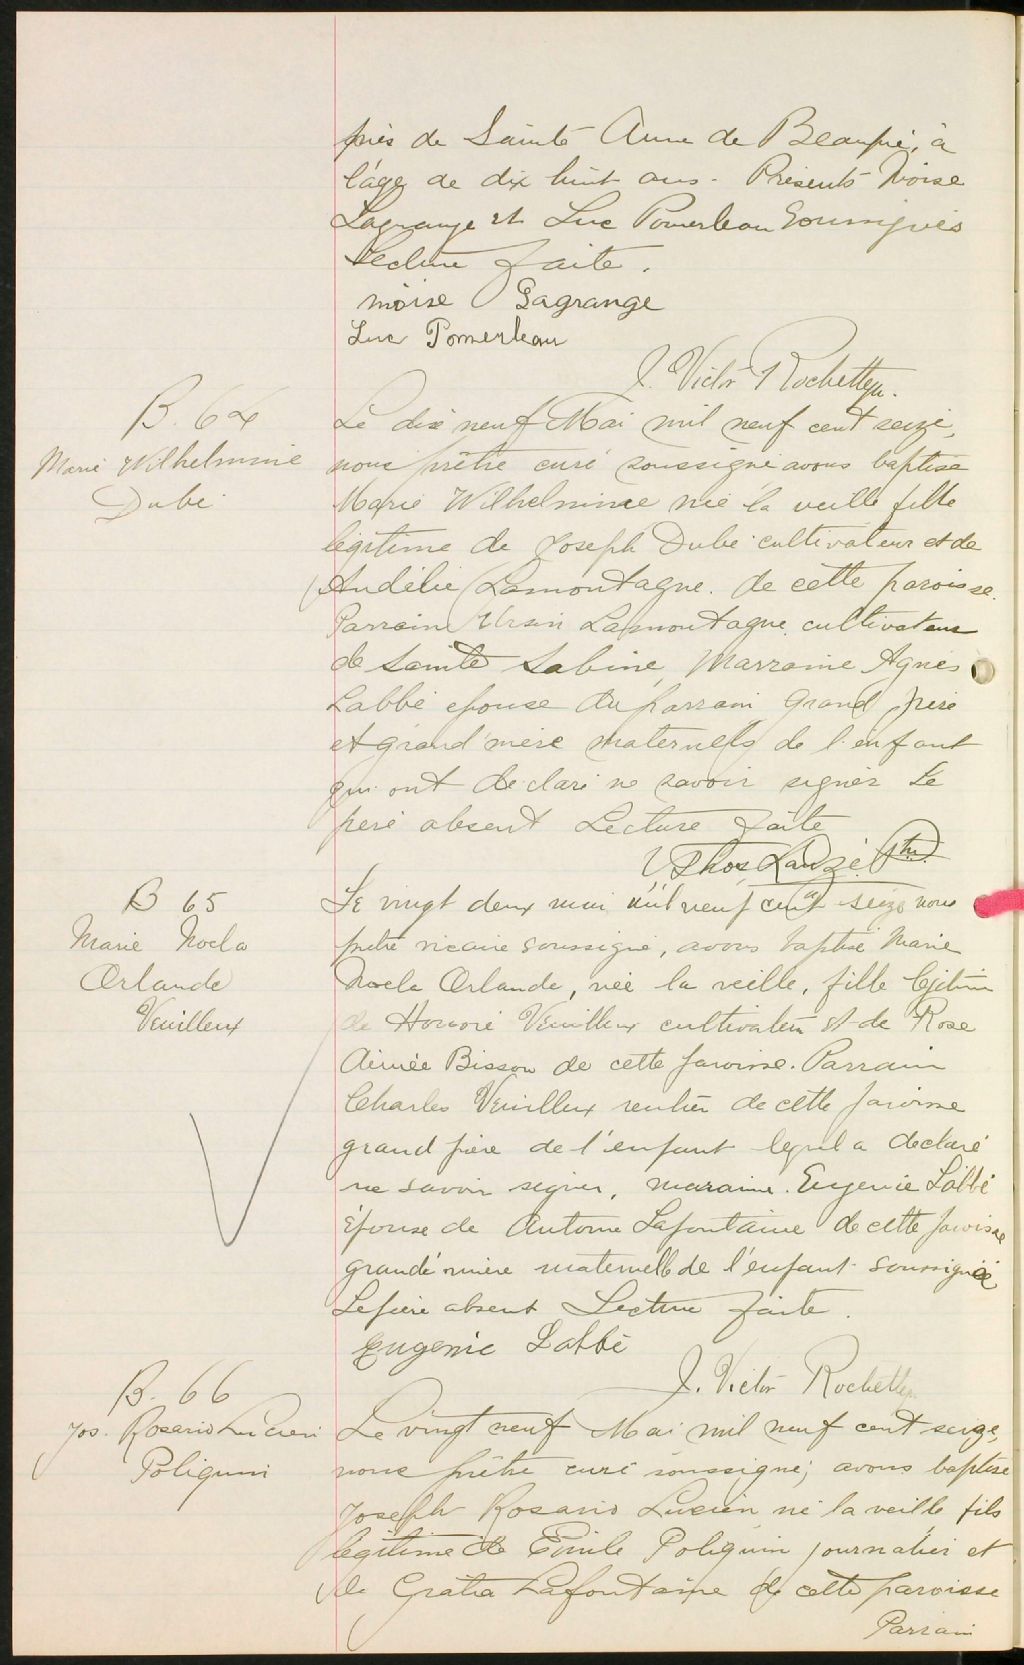 près de Sainte Anne de Beaupré, à
l'âge de dix huit ans. Présents Moise
Lagrange et Luc Pomerleau soussignés
Lecture faite.
moise Lagrange
Luc Pomerleau
J. Victor Rochette ptr.
B. 64
Marie Wilhelmine
Dubé
Le dix neuf Mai mil neuf cent seize,
nous prêtre curé soussigné avons baptisé
Marie Wilhelmine née la veille fille
légitime de Joseph Dubé cultivateur et de
Audélie Lamontagne de cette paroisse.
Parrain Ursin Lamontagne cultivateur
de Sainte Sabine, Marraine Agnès
Labbé épouse du parrain Grand père
et grand'mère maternels de l'enfant
qui ont déclaré ne savoir signer Le
père absent Lecture faite
Thos Lauzé Ptre.
B 65
Marie Noela
Orlande
Veuilleux
Le vingt deux mai mil neuf cent seize nous
prêtre vicaire soussigné, avons baptisé Marie
Noela Orlande, née la veille, fille légitime
de Honoré Veuilleux cultivateur et de Rose
Aimée Bisson de cette paroisse. Parrain
Charles Veuilleux rentier de cette paroisse
grand père de l'enfant lequel a déclaré
ne savoir signer, maraine. Eugenie Labbé
épouse de Antoine Lafontaine de cette paroisse
grande mère maternelle de l'enfant soussignée
Le père absent Lecture faite.
Eugenie Labbé
J. Victor Rochette
B. 66
Jos. Rosario Lucien
Poliquin
Le vingt neuf Mai mil neuf cent seize,
nous prêtre curé soussigné, avons baptisé
Joseph Rosario Lucien né la veille fils
légitime de Emile Poliquin journalier et
de Gratia Lafontaine de cette paroisse
Parrain